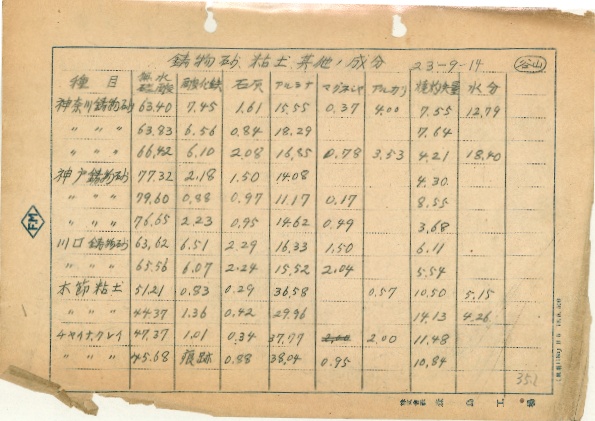 鋳物砂.粘土.其他ノ成分 23-9-14 谷山
種目 無水硅酸 酸化鉄 石灰 アルミナ マグネシヤ アルカリ 灼熱失量 水分
神奈川鋳物砂 63.40 7.45 1.61 15.55 0.37 4.00 7.55 12.79
〃 〃 〃 63.83 6.56 0.84 18.29 7.64
〃 〃 〃 66.42 6.10 2.08 16.85 0.78 3.53 4.21 18.40
神戸鋳物砂 77.32 2.18 1.50 14.08 4.30
〃 〃 〃 79.60 0.88 0.97 11.17 0.17 8.55
〃 〃 〃 76.65 2.23 0.95 14.62 0.49 3.68
川口鋳物砂 63.62 6.51 2.29 16.33 1.50 6.11
〃 〃 〃 65.56 6.07 2.24 15.52 2.04 5.54
木節粘土 51.21 0.83 0.29 36.58 0.57 10.50 5.15
〃 〃 〃 44.37 1.36 0.42 29.96 14.13 4.26
チャイナクレイ 47.37 1.01 0.34 37.77 2.00 2.00 11.48
〃 〃 〃 45.68 痕跡 0.88 38.04 0.95 10.84
FM
352